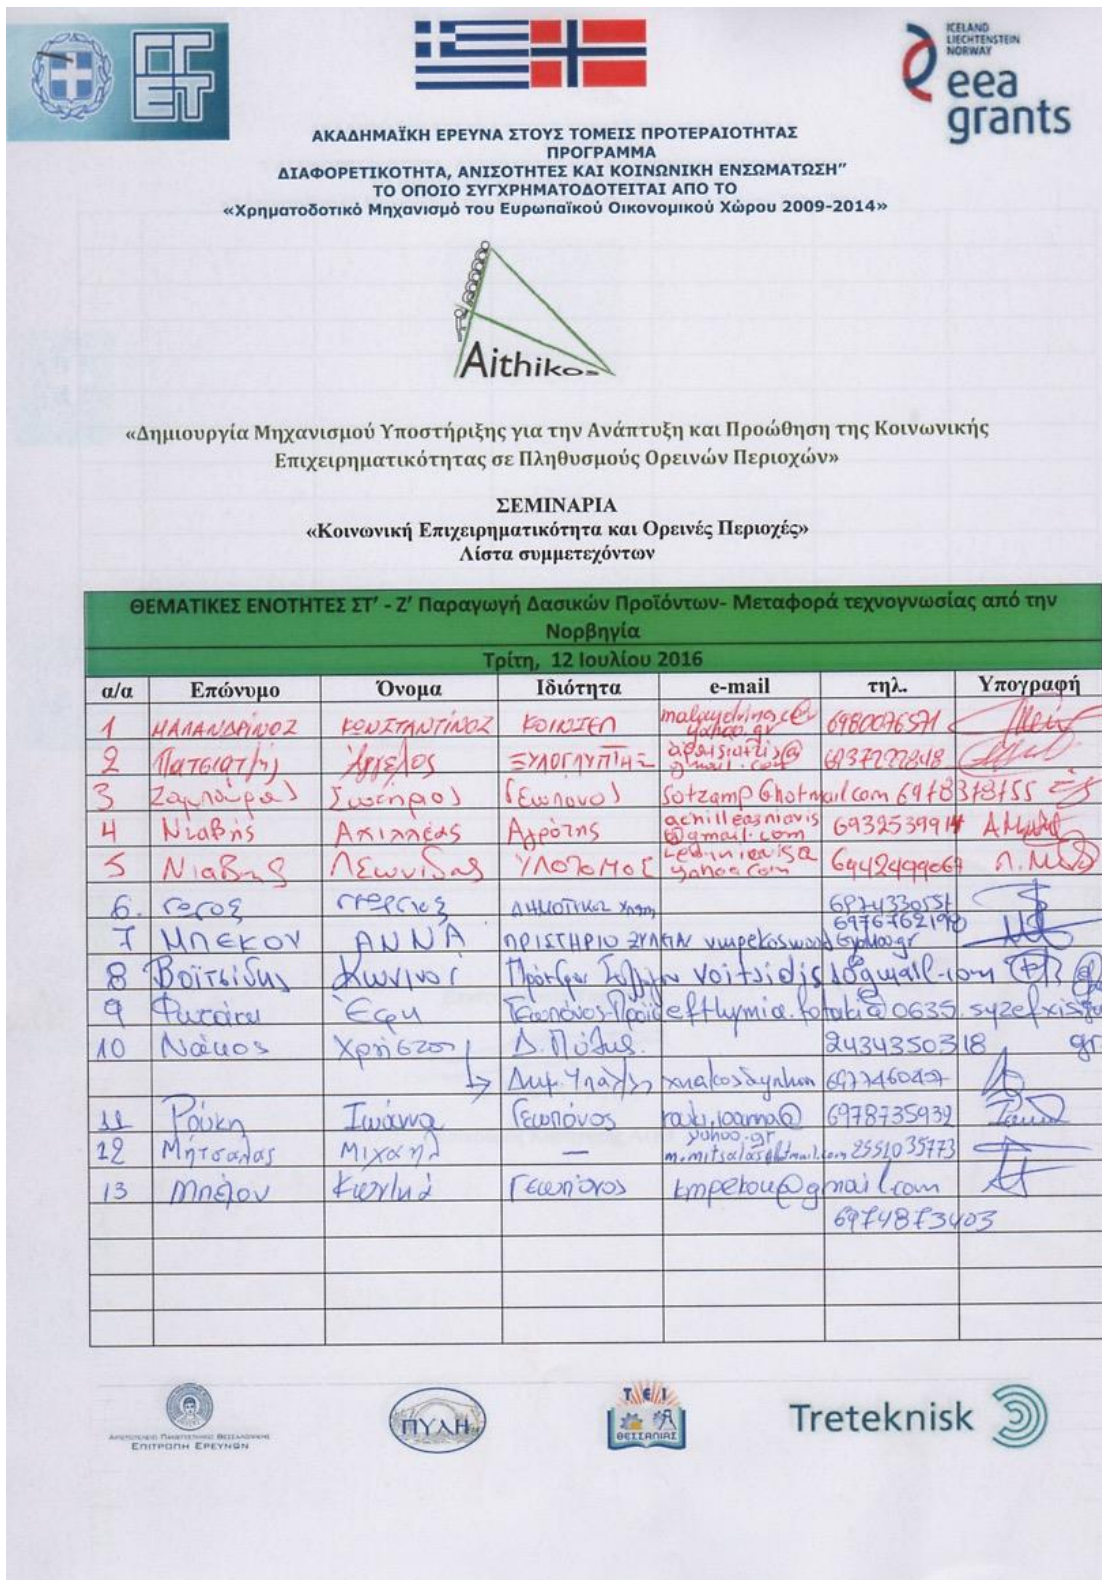 ΓΓ
ΕΤ
ICELAND
LIECHTENSTEIN
NORWAY
eea
grants
ΑΚΑΔΗΜΑΪΚΗ ΕΡΕΥΝΑ ΣΤΟΥΣ ΤΟΜΕΙΣ ΠΡΟΤΕΡΑΙΟΤΗΤΑΣ
ΠΡΟΓΡΑΜΜΑ
ΔΙΑΦΟΡΕΤΙΚΟΤΗΤΑ, ΑΝΙΣΟΤΗΤΕΣ ΚΑΙ ΚΟΙΝΩΝΙΚΗ ΕΝΣΩΜΑΤΩΣΗ”
ΤΟ ΟΠΟΙΟ ΣΥΓΧΡΗΜΑΤΟΔΟΤΕΙΤΑΙ ΑΠΟ ΤΟ
«Χρηματοδοτικό Μηχανισμό του Ευρωπαϊκού Οικονομικού Χώρου 2009-2014»
Aithikos
«Δημιουργία Μηχανισμού Υποστήριξης για την Ανάπτυξη και Προώθηση της Κοινωνικής
Επιχειρηματικότητας σε Πληθυσμούς Ορεινών Περιοχών»
ΣΕΜΙΝΑΡΙΑ
«Κοινωνική Επιχειρηματικότητα και Ορεινές Περιοχές»
Λίστα συμμετεχόντων
ΘΕΜΑΤΙΚΕΣ ΕΝΟΤΗΤΕΣ ΣΤ’ - Ζ’ Παραγωγή Δασικών Προϊόντων- Μεταφορά τεχνογνωσίας από την
Νορβηγία
Τρίτη, 12 Ιουλίου 2016
α/α Επώνυμο Όνομα Ιδιότητα e-mail τηλ. Υπογραφή
1 ΜΑΛΑΝΔΡΙΝΟΣ ΚΩΝΣΤΑΝΤΙΝΟΣ ΚΟΙΝΣΕΠ 6980076571
2 Άγγελος ΞΥΛΟΓΛΥΠΤΗΣ
3 Ζαμπούρας Σωτήριος Γεωπόνος sotzamp@hotmail.com 6978378755
4 Νιαβής Αχιλλέας Αγρότης achilleasniavis
@gmail.com
5 Νιαβης Λεωνίδας ΥΛΟΤΟΜΟΣ yahoo.com 6942499069
6. 6974330551
7 ΜΠΕΚΟΥ ΑΝΝΑ ΠΡΙΣΤΗΡΙΟ ΞΥΛΕΙΑΣ 6976762190
8 Βοϊτσίδης Κων/νος
9 Φωτάκη Έφη efthymia.fotaki@0635.syzefxis.gov.
gr
10 Νάκος Χρήστος Δ. Πύλης. 2434350318
6977460407
11 Ρούκη Ιωάννα Γεωπόνος rouki.ioanna@ 6978735932
yahoo.gr
12 Μήτσαλας Μιχαήλ — m.mitsalas@hotmail.com 2551035773
13 Μπέκου Κων/να Γεωπόνος kmpekou@gmail.com
6974873403
ΑΡΙΣΤΟΤΕΛΕΙΟ ΠΑΝΕΠΙΣΤΗΜΙΟ ΘΕΣΣΑΛΟΝΙΚΗΣ
ΕΠΙΤΡΟΠΗ ΕΡΕΥΝΩΝ
ΠΥΛΗ
Τ.Ε.Ι
ΘΕΣΣΑΛΙΑΣ
Treteknisk